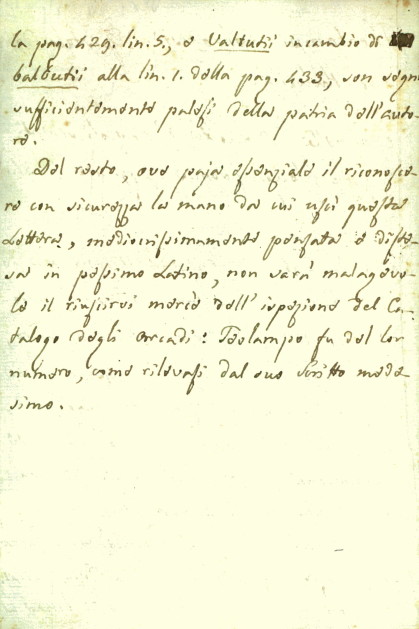 la pag. 429. lin. 5., e Valtutii incambio di
balbutii alla lin. 1. della pag. 433, son segni
sufficientemente palesi della patria dell'auto-
re.
Del resto, ove paja essenziale il riconosce-
re con sicurezza la mano da cui uscì questa
Lettera, mediocrissimamente pensata e diste-
sa in pessimo Latino, non sarà malagevo-
le il riuscirvi mercè dell'ispezione del Ca-
talogo degli Arcadi: Teolampo fu del lor
numero, come rilevasi dal suo scritto mede
simo.